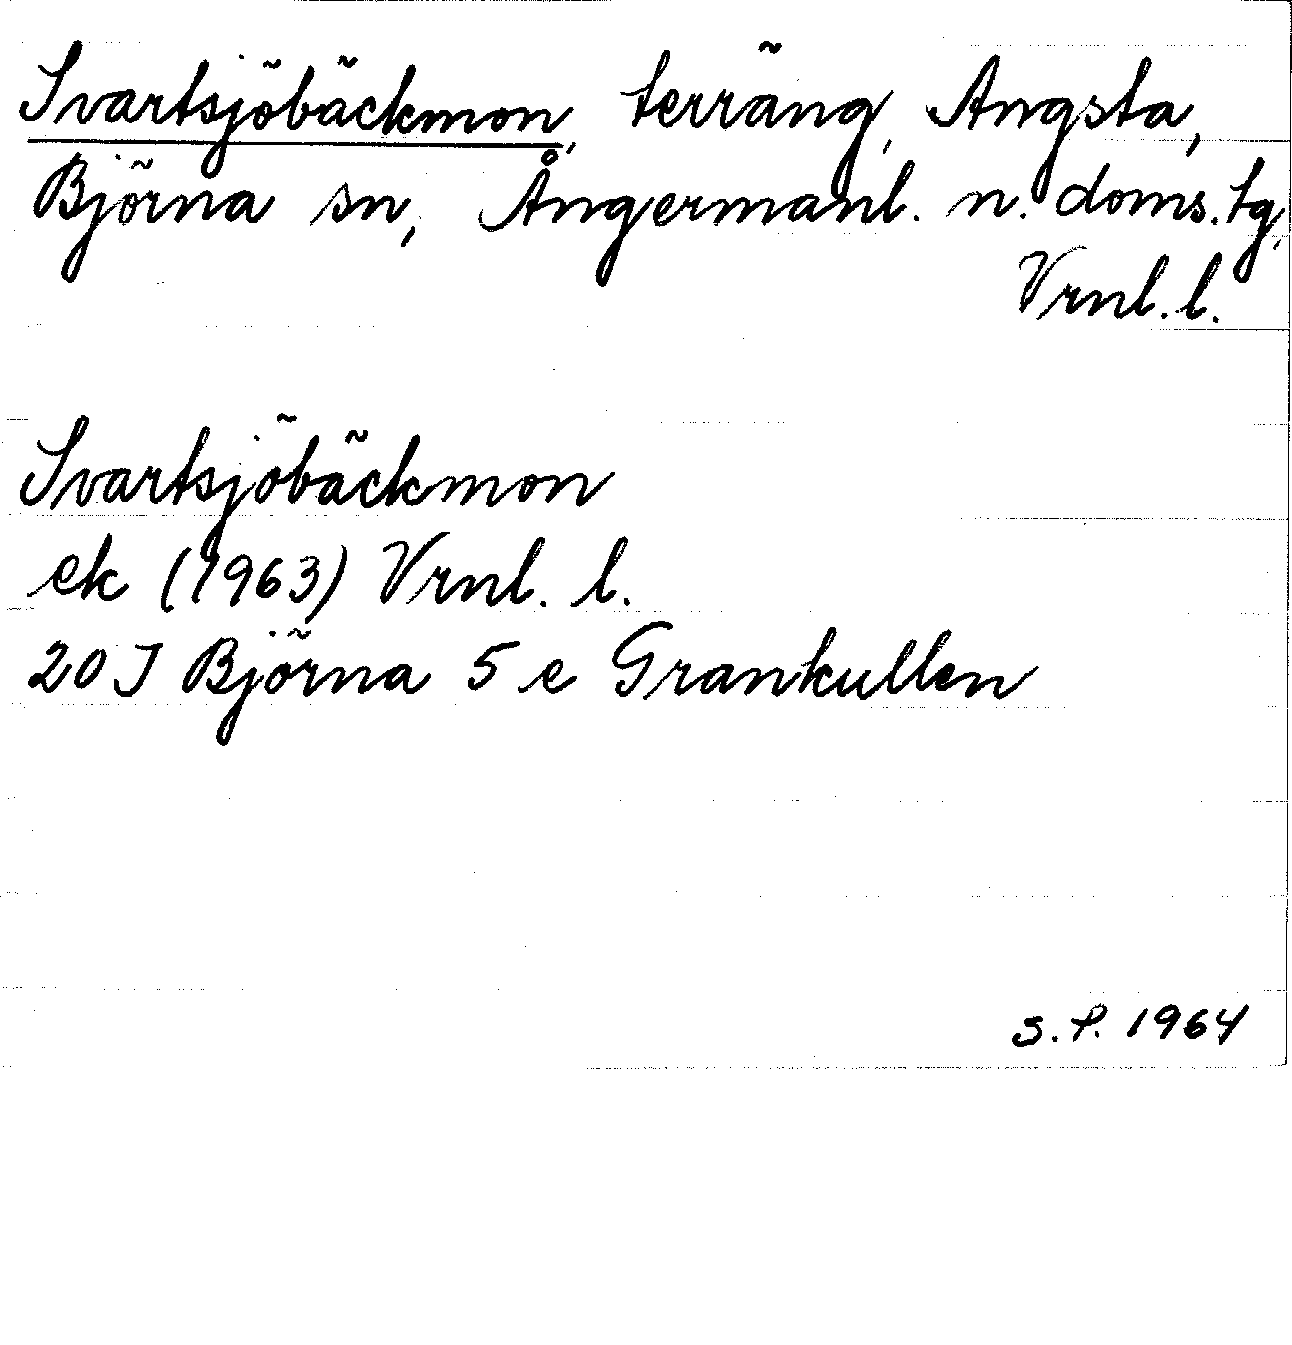 Svartsjöbäckmon, terräng, Angsta,
Björna sn, Ångermanl. n. doms. tg,
Vrnl. l.
Svartsjöbäckmon
ek (1963) Vrnl. l.
20 J Björna 5 e Grankullen
S. P. 1964